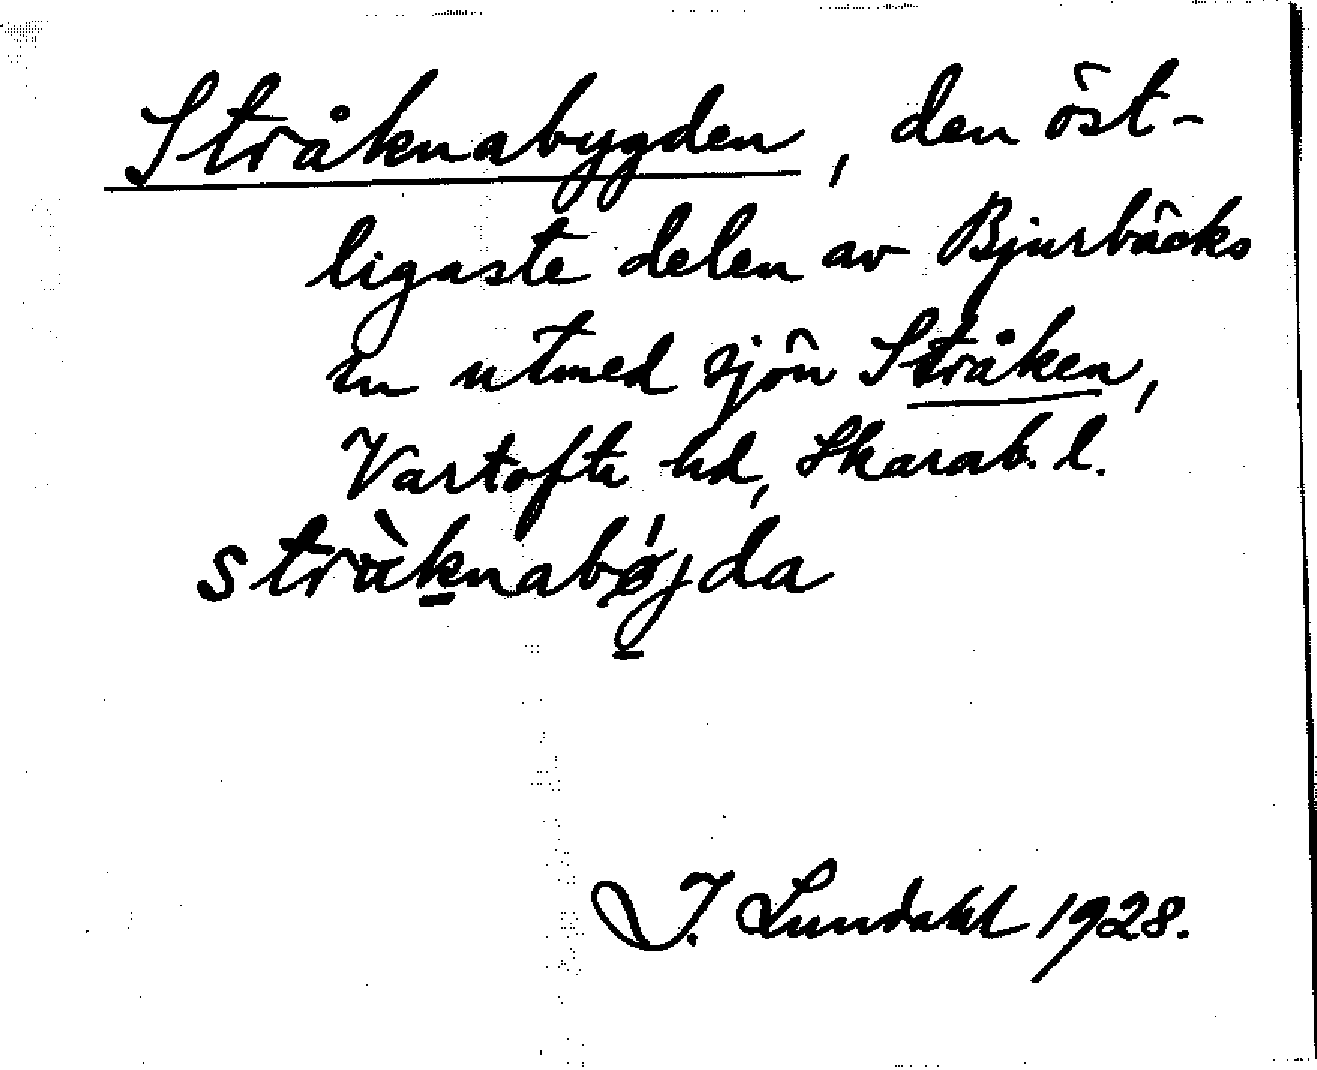 Stråknabygden, den öst-
ligaste delen av Bjurbäcks
sn utmed sjön Stråken,
Vartofta hd, Skarab. l.
stràknabǿjda
I. Lundahl 1928.